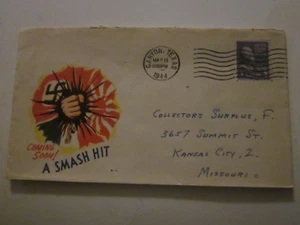 CANTON, TEXAS
1944
COLLECTORS SURPLUS, F.
3657 SUMMIT ST.
KANSAS CITY, 2.
MISSOURI.
COMING
SOON!
A SMASH HIT